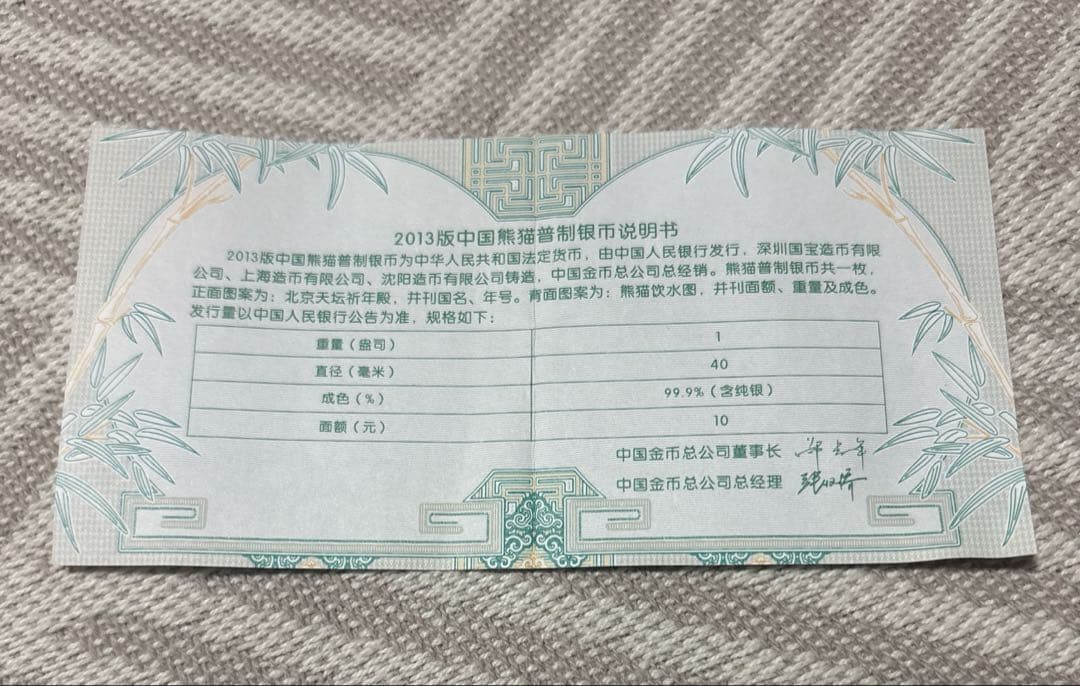 2013版中国熊猫普制银币说明书
2013版中国熊猫普制银币为中华人民共和国法定货币，由中国人民银行发行，深圳国宝造币有限
公司、上海造币有限公司、沈阳造币有限公司铸造，中国金币总公司总经销。熊猫普制银币共一枚，
正面图案为：北京天坛祈年殿，并刊国名、年号。背面图案为：熊猫饮水图，并刊面额、重量及成色。
发行量以中国人民银行公告为准，规格如下：
重量（盎司） 1
直径（毫米） 40
成色（%） 99.9%（含纯银）
面额（元） 10
中国金币总公司董事长
中国金币总公司总经理